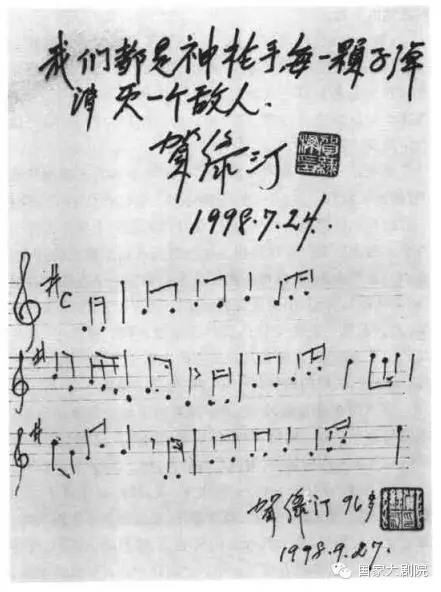 我们都是神枪手,每一顆子弹
消灭一个敌人.
賀绿汀
1998.7.24.
C
賀绿汀 96岁
1998.9.27.
国家大剧院